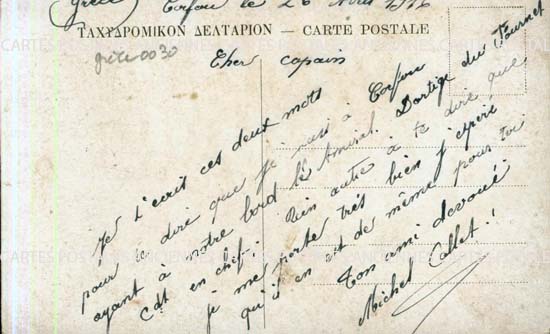 Grèce Corfou le 26 Avril 1916
ΤΑΧΥΔΡΟΜΙΚΟΝ ΔΕΛΤΑΡΙΟΝ — CARTE POSTALE
grèce0030
Cher copain
Je t'écrit ces deux mots
pour te dire que je suis à Corfou
ayant à notre bord l'Amiral Dartige du Fournet
Cdt en chef. Rien autre à te dire que
je me porte très bien j'espère
qu'il en est de même pour toi
Ton ami dévoué
Michel Collet!